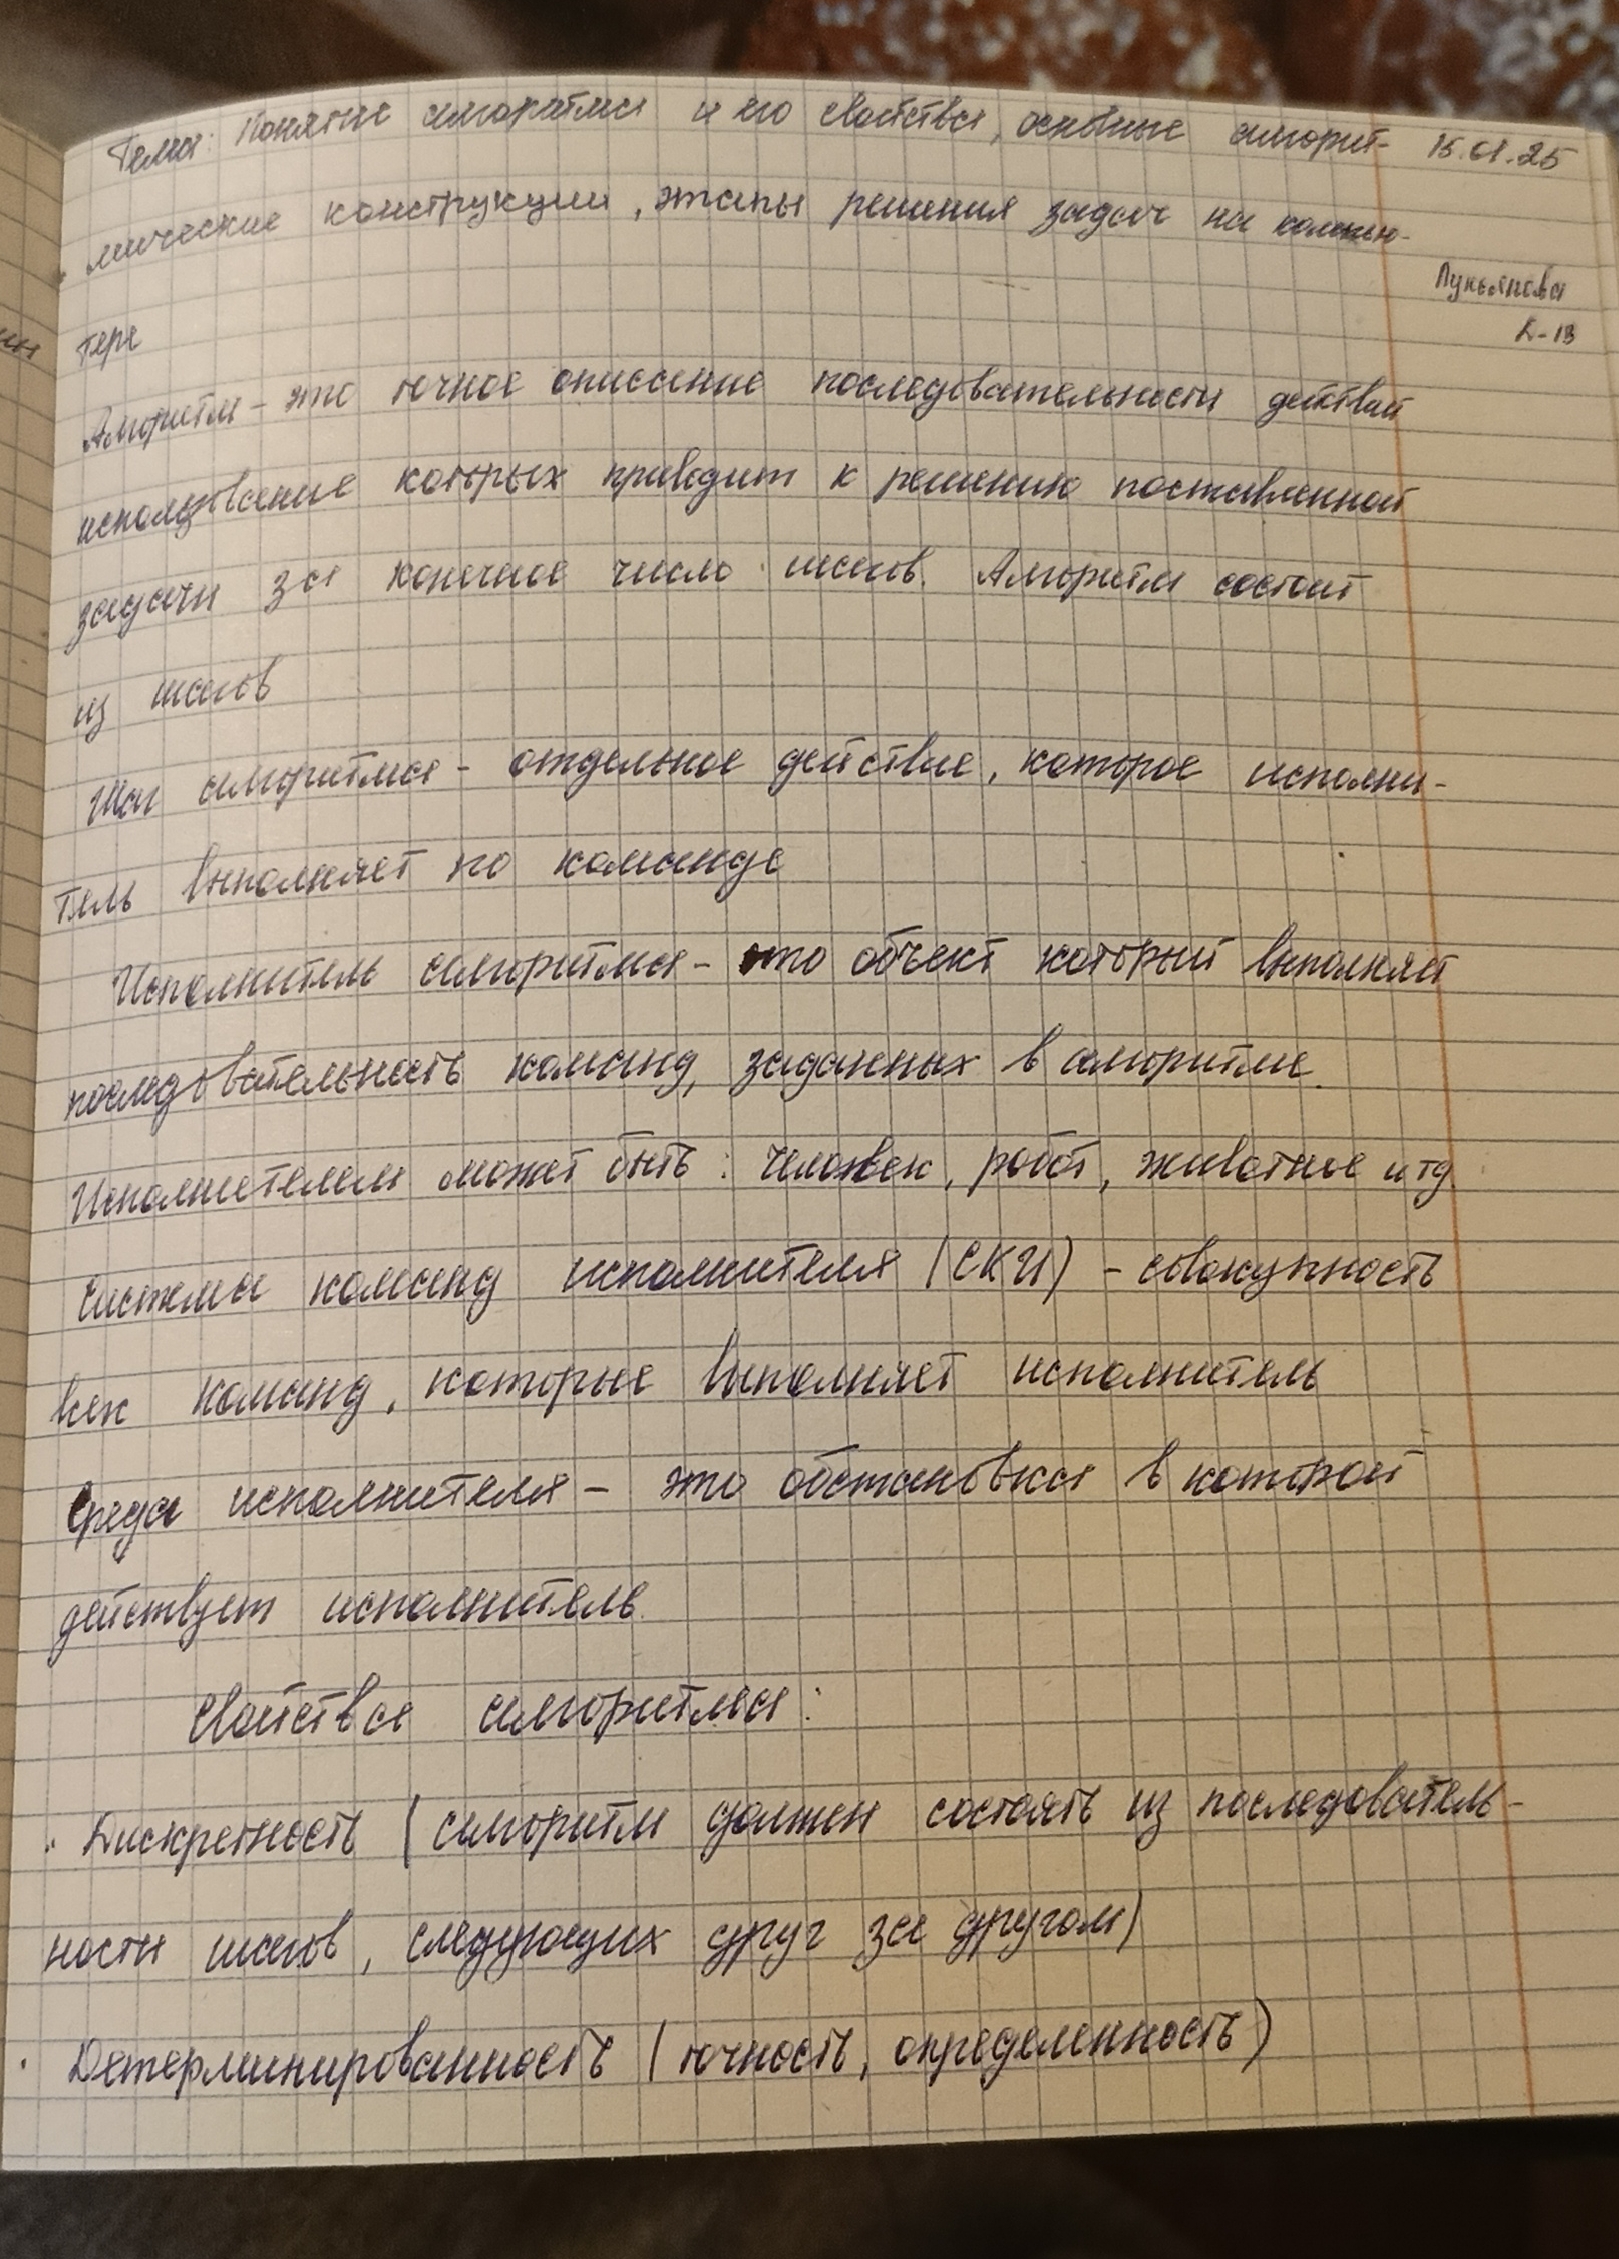 Тема: Понятие алгоритма и его свойства, основные алгорит- 15.01.25
мические конструкции, этапы решения задач на компью-
Лукьянова
Д-13
тере
Алгоритм - это точное описание последовательности действий
исползование которых приводит к решению поставленной
задачи за конечное число шагов. Алгоритм состоит
из шагов
Шаг алгоритма - отдельное действие, которое исполни-
тель выполняет по команде
Исполнитель алгоритма - это объект который выполняет
последовательность команд, заданных в алгоритме.
Исполнителем может быть: человек, робот, животное и тд.
Система команд исполнителя (СКИ) - совокупность
всех команд, которые выполняет исполнитель
Среда исполнителя - это обстановка в которой
действует исполнитель.
Свойства алгоритма:
· Дискретность (алгоритм должен состоять из последователь-
ности шагов, следующих друг за другом)
· Детерминированность (точность, определенность)